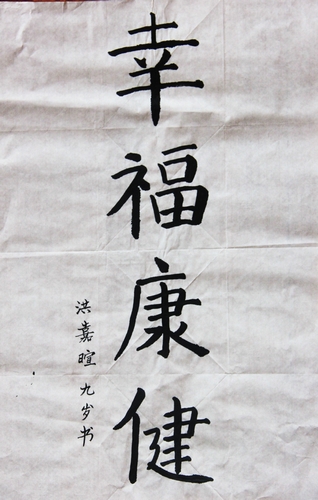 幸福康健
洪嘉暄九岁书